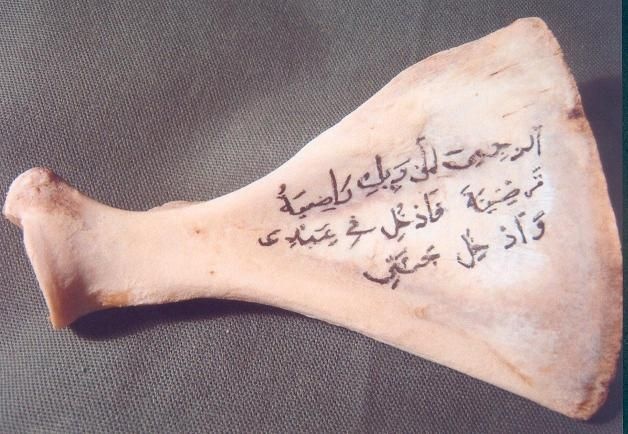 ارجعي إلى ربك راضيةُ
مَرْضِيَة فَادْخُلِ فِي عِبَٰدِى
وَادْخُلِ جنتي